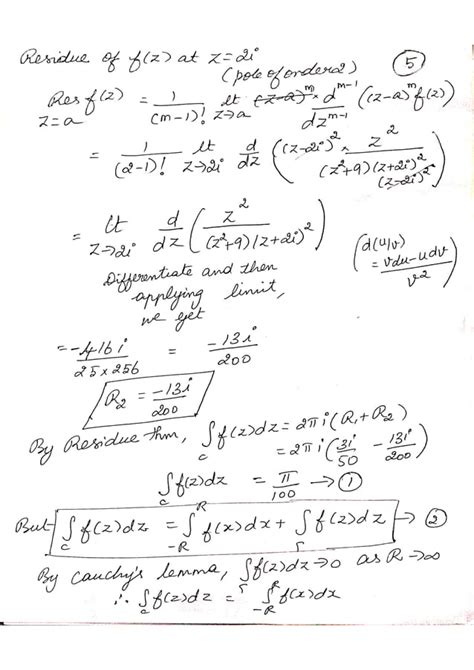 Residue of f(z) at z=2i
(pole of order 2)
5
Res f(z) = 1/(m-1)! lt z→a d^(m-1)/dz^(m-1) (z-a)^m f(z)
z=a
= 1/(2-1)! lt z→2i d/dz ((z-2i)^2 × z^2/((z^2+9)(z+2i)^2 (z-2i)^2))
= lt z→2i d/dz (z^2/((z^2+9)(z+2i)^2))
(d(u/v) = vdu-udv/v^2)
Differentiate and then
applying limit,
we get
= -416i/25×256 = -13i/200
R2 = -13i/200
By Residue thm, ∫c f(z)dz = 2πi(R1+R2)
= 2πi(3i/50 - 13i/200)
∫c f(z)dz = π/100 → 1
But ∫c f(z)dz = ∫-R^R f(x)dx + ∫Γ f(z)dz → 2
By cauchy's lemma, ∫Γ f(z)dz→0 as R→∞
∴ ∫c f(z)dz = ∫-R^R f(x)dx